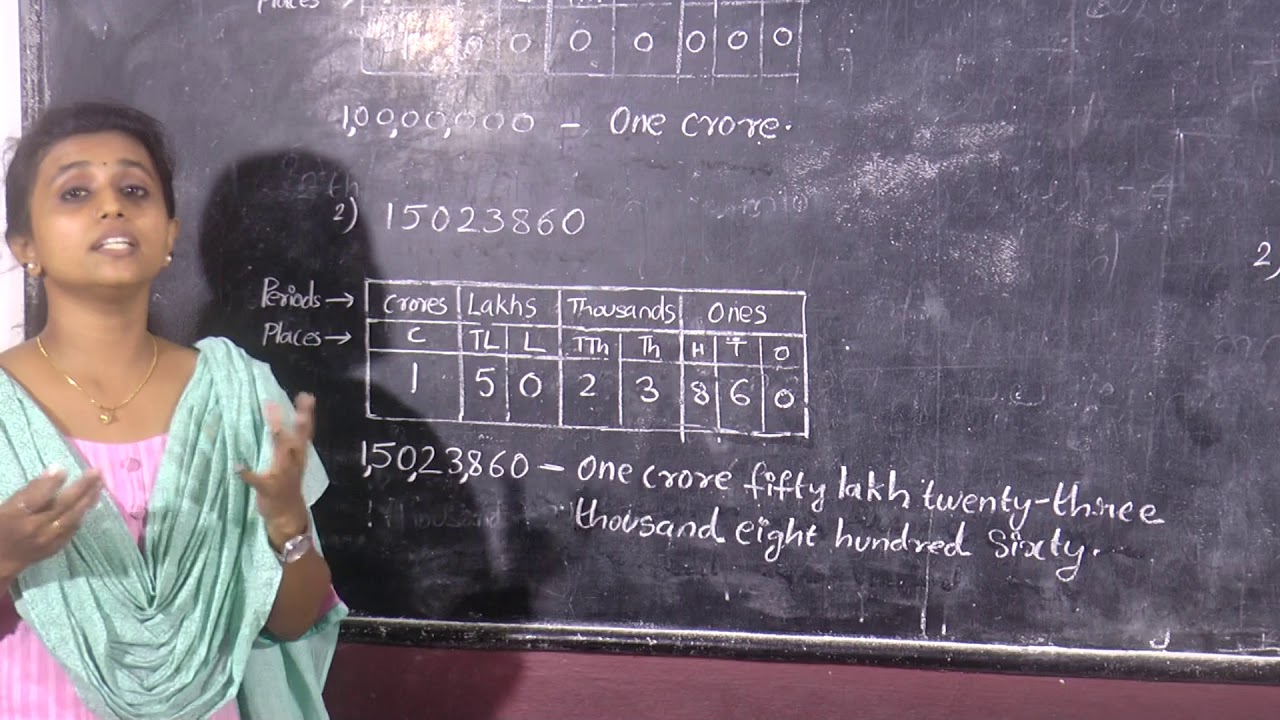 Places →
1 0 0 0 0 0 0 0
1,00,00,000 - One crore.
2) 15023860
Periods → Crores Lakhs Thousands Ones
Places → C TL L TTh Th H T O
1 5 0 2 3 8 6 0
1,50,23,860 - One crore fifty lakh twenty-three
thousand eight hundred sixty.
2)